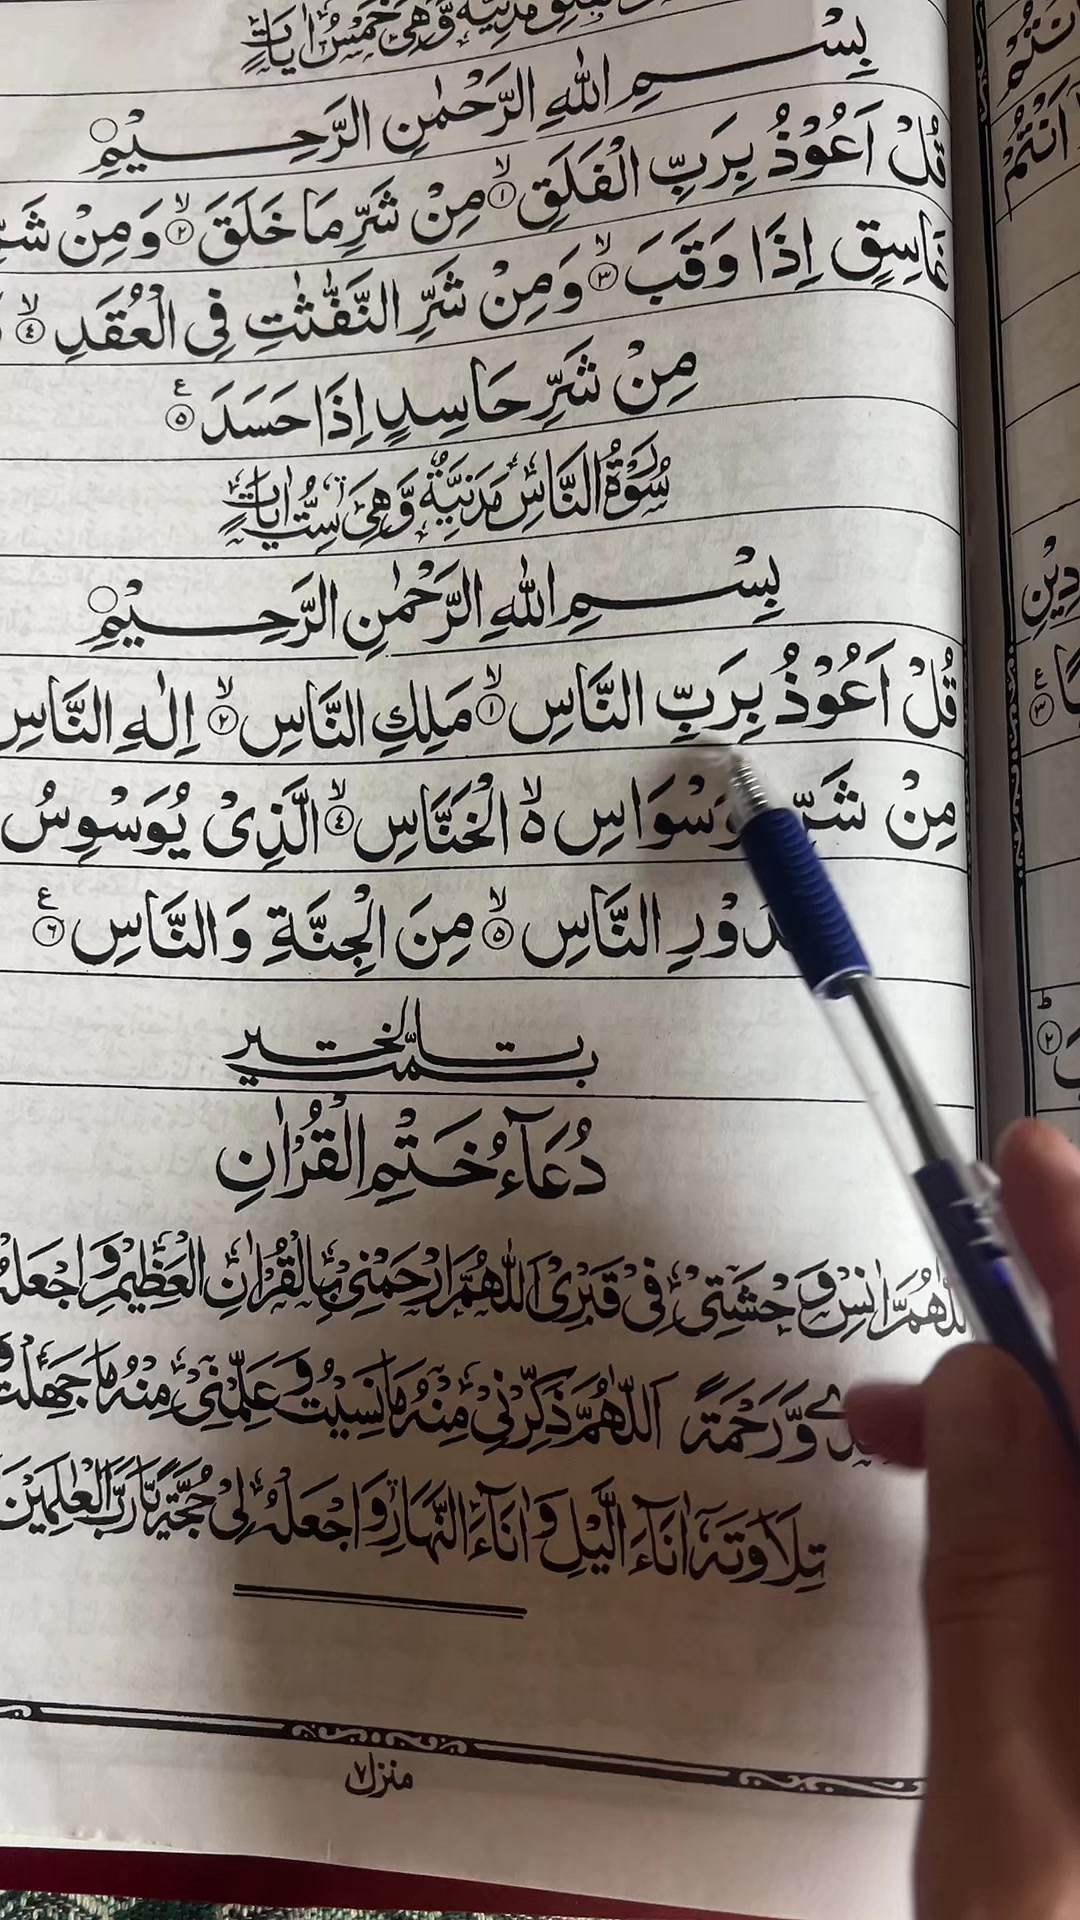 مَدَنِيَّةٌ وَّهِيَ خَمْسُ اٰيَاتٍ
بِسْمِ اللّٰهِ الرَّحْمٰنِ الرَّحِيْمِ ○
قُلْ اَعُوْذُ بِرَبِّ الْفَلَقِ ۙ﴿١﴾ مِنْ شَرِّ مَا خَلَقَ ۙ﴿٢﴾ وَمِنْ شَرِّ
غَاسِقٍ اِذَا وَقَبَ ۙ﴿٣﴾ وَمِنْ شَرِّ النَّفّٰثٰتِ فِى الْعُقَدِ ۙ﴿٤﴾
مِنْ شَرِّ حَاسِدٍ اِذَا حَسَدَ ﴿٥﴾ ع
سُوْرَةُ النَّاسِ مَدَنِيَّةٌ وَّهِيَ سِتُّ اٰيَاتٍ
بِسْمِ اللّٰهِ الرَّحْمٰنِ الرَّحِيْمِ ○
قُلْ اَعُوْذُ بِرَبِّ النَّاسِ ۙ﴿١﴾ مَلِكِ النَّاسِ ۙ﴿٢﴾ اِلٰهِ النَّاسِ
مِنْ شَرِّ وَسْوَاسِ ەۙ الْخَنَّاسِ ۙ﴿٤﴾ الَّذِىْ يُوَسْوِسُ
دُوْرِ النَّاسِ ۙ﴿٥﴾ مِنَ الْجِنَّةِ وَ النَّاسِ ﴿٦﴾ ع
تمت بالخير
دُعَآءُ خَتْمِ الْقُرْاٰنِ
اَللّٰهُمَّ اٰنِسْ وَحْشَتِىْ فِىْ قَبْرِىْ اَللّٰهُمَّ ارْحَمْنِىْ بِالْقُرْاٰنِ الْعَظِيْمِ وَاجْعَلْهُ
وَّرَحْمَةً اَللّٰهُمَّ ذَكِّرْنِىْ مِنْهُ مَا نَسِيْتُ وَعَلِّمْنِىْ مِنْهُ مَا جَهِلْتُ
تِلَاوَتَهٗ اٰنَآءَ الَّيْلِ وَ اٰنَآءَ النَّهَارِ وَاجْعَلْهُ لِىْ حُجَّةً يَّارَبَّ الْعٰلَمِيْنَ
منزل ٧
اَنْتُمْ
دِيْنِ